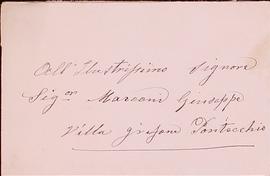 All' Illustrissimo Signore
Sig.or Marconi Giuseppe
Villa Grifone Pontecchio